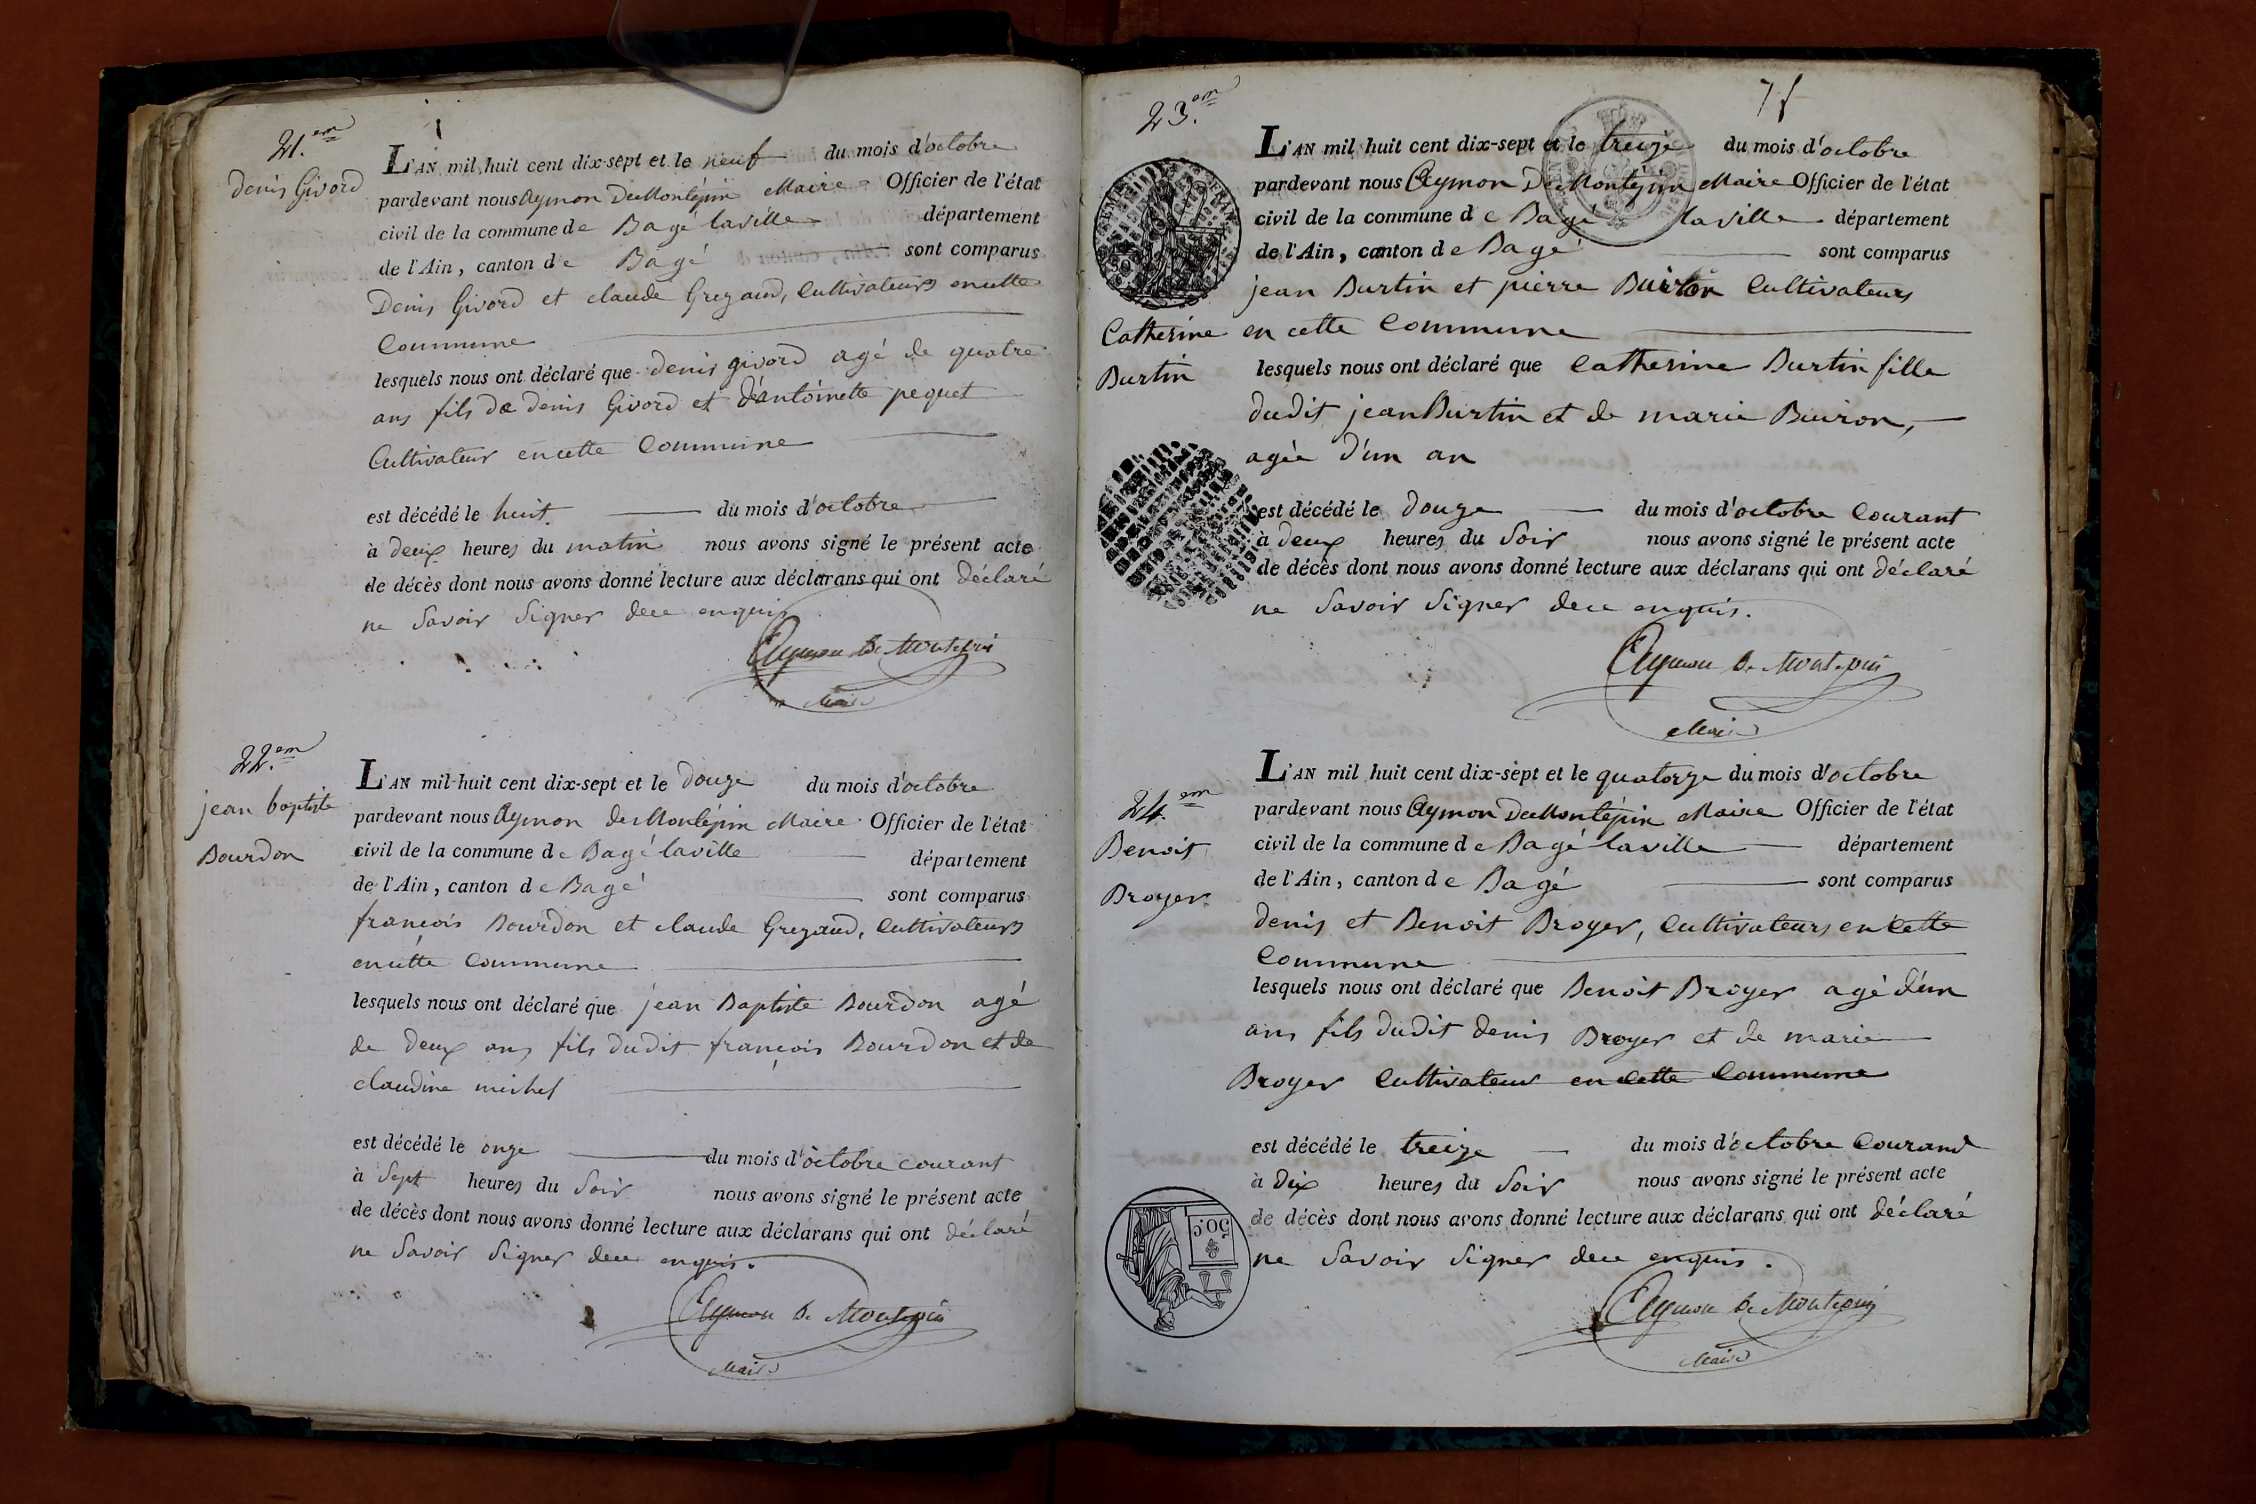 21.em
Denis Givord
L'AN mil huit cent dix-sept et le neuf du mois d'octobre
pardevant nous Aymon DeMontépin Maire Officier de l'état
civil de la commune de Bagé laville département
de l'Ain, canton de Bagé sont comparus
Denis Givord et claude Grezaud, Cultivateurs encette
Commune
lesquels nous ont déclaré que denis givord agé de quatre
ans fils de denis Givord et d'antoinette pequet
Cultivateur encette Commune
est décédé le huit du mois d'octobre
à deux heures du matin nous avons signé le présent acte
de décès dont nous avons donné lecture aux déclarans qui ont déclaré
ne Savoir Signer dece enquis
Aymon De Montepin
Maire
22.em
jean baptiste
Bourdon
L'AN mil huit cent dix-sept et le douze du mois d'octobre
pardevant nous Aymon DeMontépin Maire Officier de l'état
civil de la commune de Bagé laville département
de l'Ain, canton de Bagé sont comparus
françois Bourdon et claude Grezaud, Cultivateurs
encette Commune
lesquels nous ont déclaré que jean Baptiste Bourdon agé
de deux ans fils dudit françois Bourdon et de
claudine michel
est décédé le onze du mois d'octobre courant
à Sept heures du Soir nous avons signé le présent acte
de décès dont nous avons donné lecture aux déclarans qui ont déclaré
ne Savoir Signer dece enquis.
Aymon De Montepin
Maire
23.em
Catherine
Burtin
L'AN mil huit cent dix-sept et le treize du mois d'octobre
pardevant nous Aymon DeMontépin Maire Officier de l'état
civil de la commune de Bagé laville département
de l'Ain, canton de Bagé sont comparus
jean Burtin et pierre Buiron Cultivateurs
en cette Commune
lesquels nous ont déclaré que Catherine Burtin fille
dudit jean Burtin et de marie Buiron,
agée d'un an
est décédé le douze du mois d'octobre Courant
à deux heures du Soir nous avons signé le présent acte
de décès dont nous avons donné lecture aux déclarans qui ont déclaré
ne Savoir Signer dece enquis.
Aymon De Montepin
Maire
24.em
Benoit
Broyer
L'AN mil huit cent dix-sept et le quatorze du mois d'octobre
pardevant nous Aymon DeMontépin Maire Officier de l'état
civil de la commune de Bagé laville département
de l'Ain, canton de Bagé sont comparus
denis et Benoit Broyer, Cultivateurs en Cette
Commune
lesquels nous ont déclaré que Benoit Broyer agé d'un
ans fils dudit denis Broyer et de marie
Broyer Cultivateur en Cette Commune
est décédé le treize du mois d'octobre Courand
à Dix heures du Soir nous avons signé le présent acte
de décès dont nous avons donné lecture aux déclarans qui ont déclaré
ne Savoir Signer dece enquis.
Aymon De Montepin
Maire
50.c